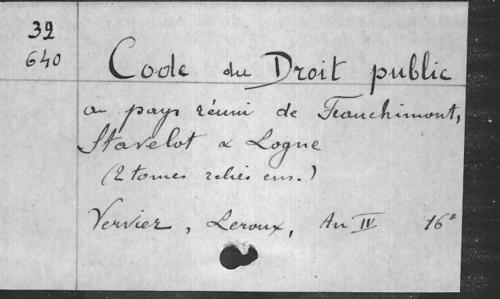 32
640
Code du Droit public
au pays réuni de Franchimont,
Stavelot & Logne
(2 tomes reliés ens.)
Vervier, Leroux, An IV 16°